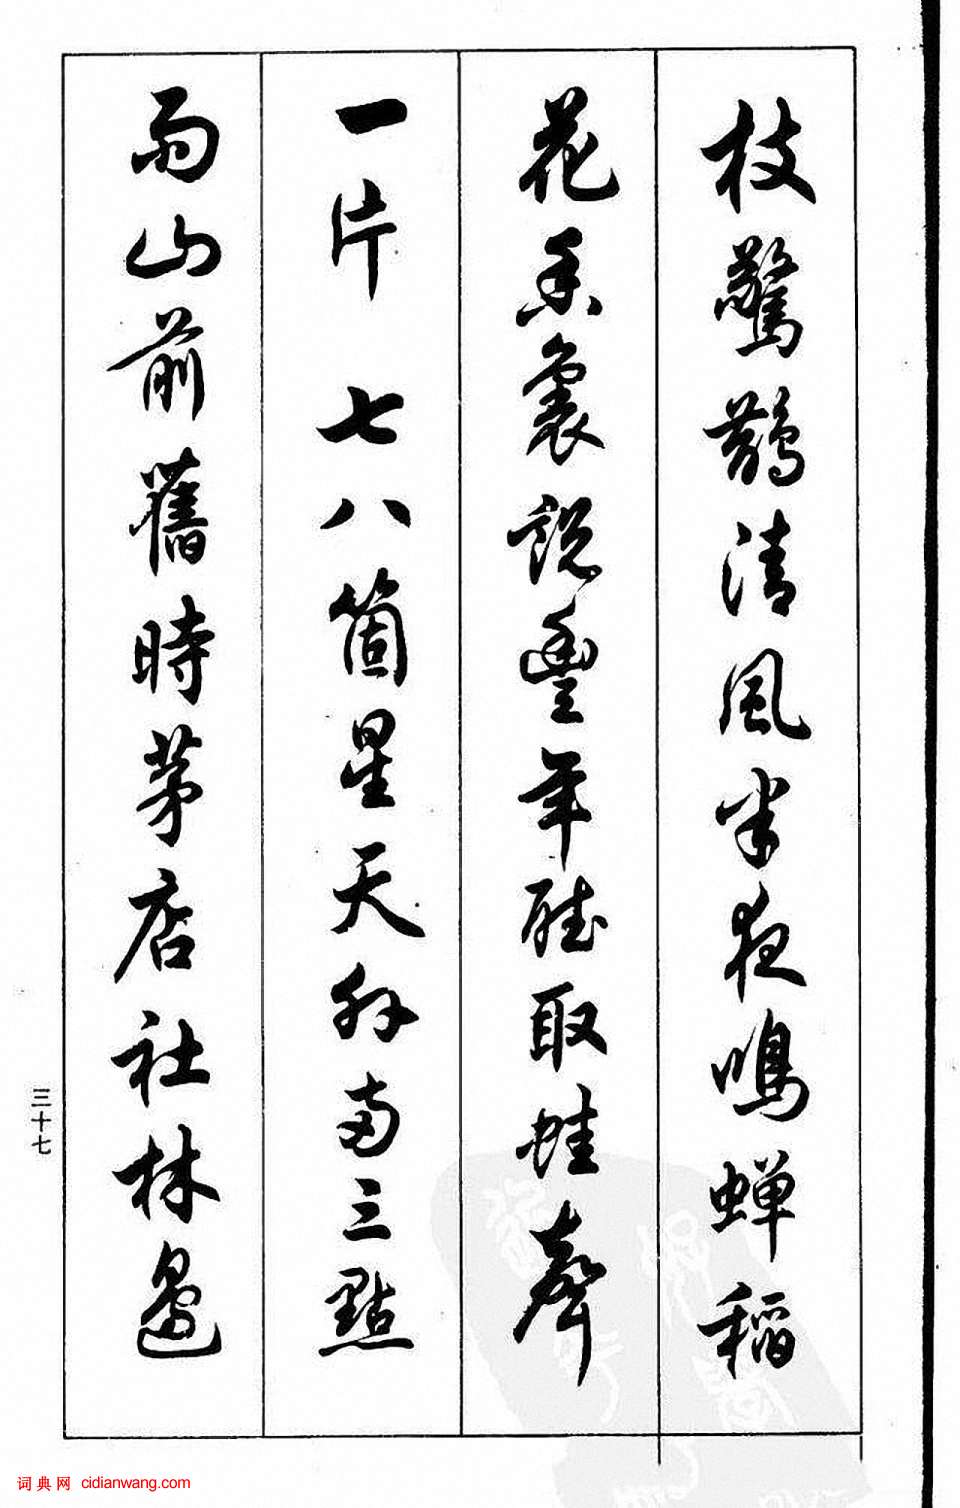 枝驚鵲清風半夜鳴蝉稻
花香裏説豐年聽取蛙聲
一片 七八箇星天外兩三點
雨山前舊時茅店社林邊
三十七
词典网 cidianwang.com